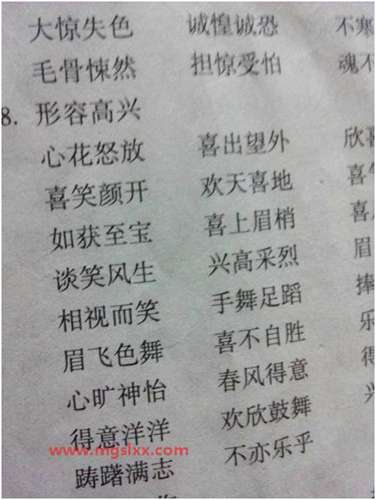 大惊失色 诚惶诚恐 不寒
毛骨悚然 担惊受怕 魂不
8. 形容高兴
心花怒放 喜出望外 欣喜
喜笑颜开 欢天喜地 喜气
如获至宝 喜上眉梢 喜
谈笑风生 兴高采烈 眉
相视而笑 手舞足蹈 捧
眉飞色舞 喜不自胜 乐
心旷神怡 春风得意 得
得意洋洋 欢欣鼓舞 兴
www.mgslxx.com
踌躇满志 不亦乐乎